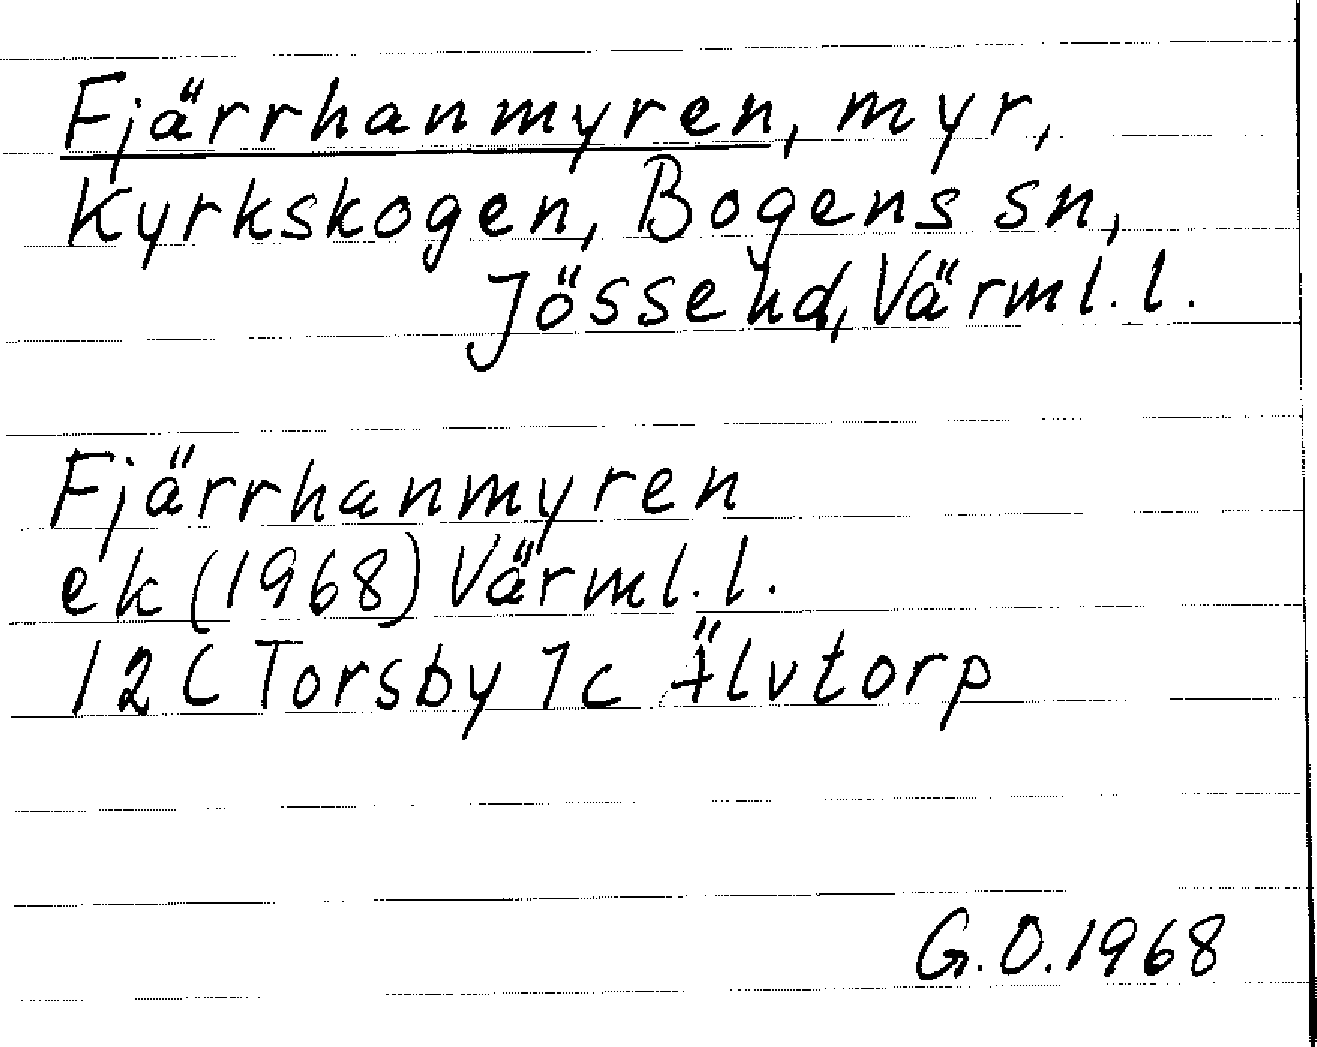 Fjärrhanmyren, myr,
Kyrkskogen, Bogens sn,
Jösse hd, Värml. l.
Fjärrhanmyren
ek (1968) Värml. l.
12C Torsby 1c Älvtorp
G.O. 1968